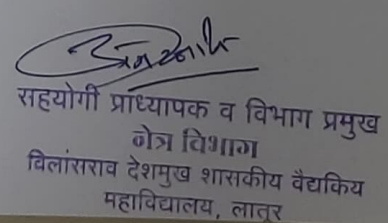 सहयोगी प्राध्यापक व विभाग प्रमुख
नेत्र विभाग
विलांसराव देशमुख शासकीय वैद्यकिय
महाविद्यालय, लातूर